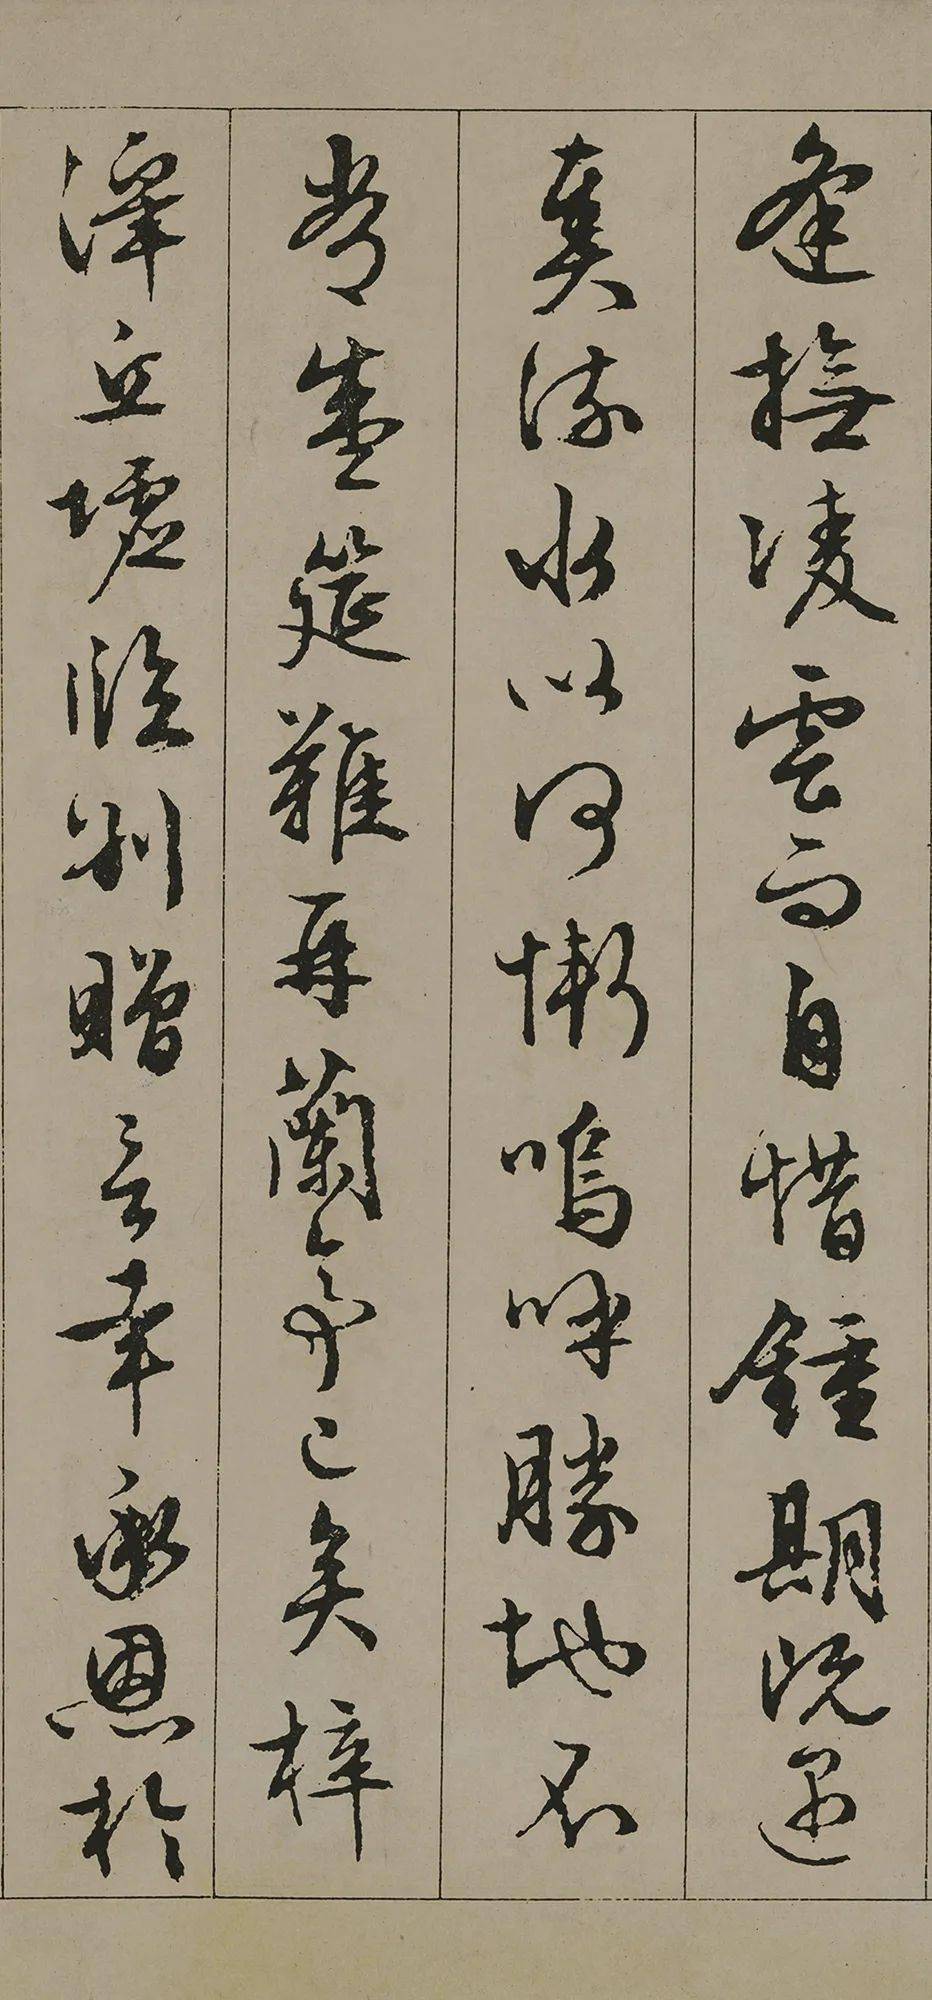 逢撫凌雲而自惜鍾期既遇
奏流水以何慚嗚呼勝地不
常盛筵難再蘭亭已矣梓
澤丘墟臨別贈言幸承恩於